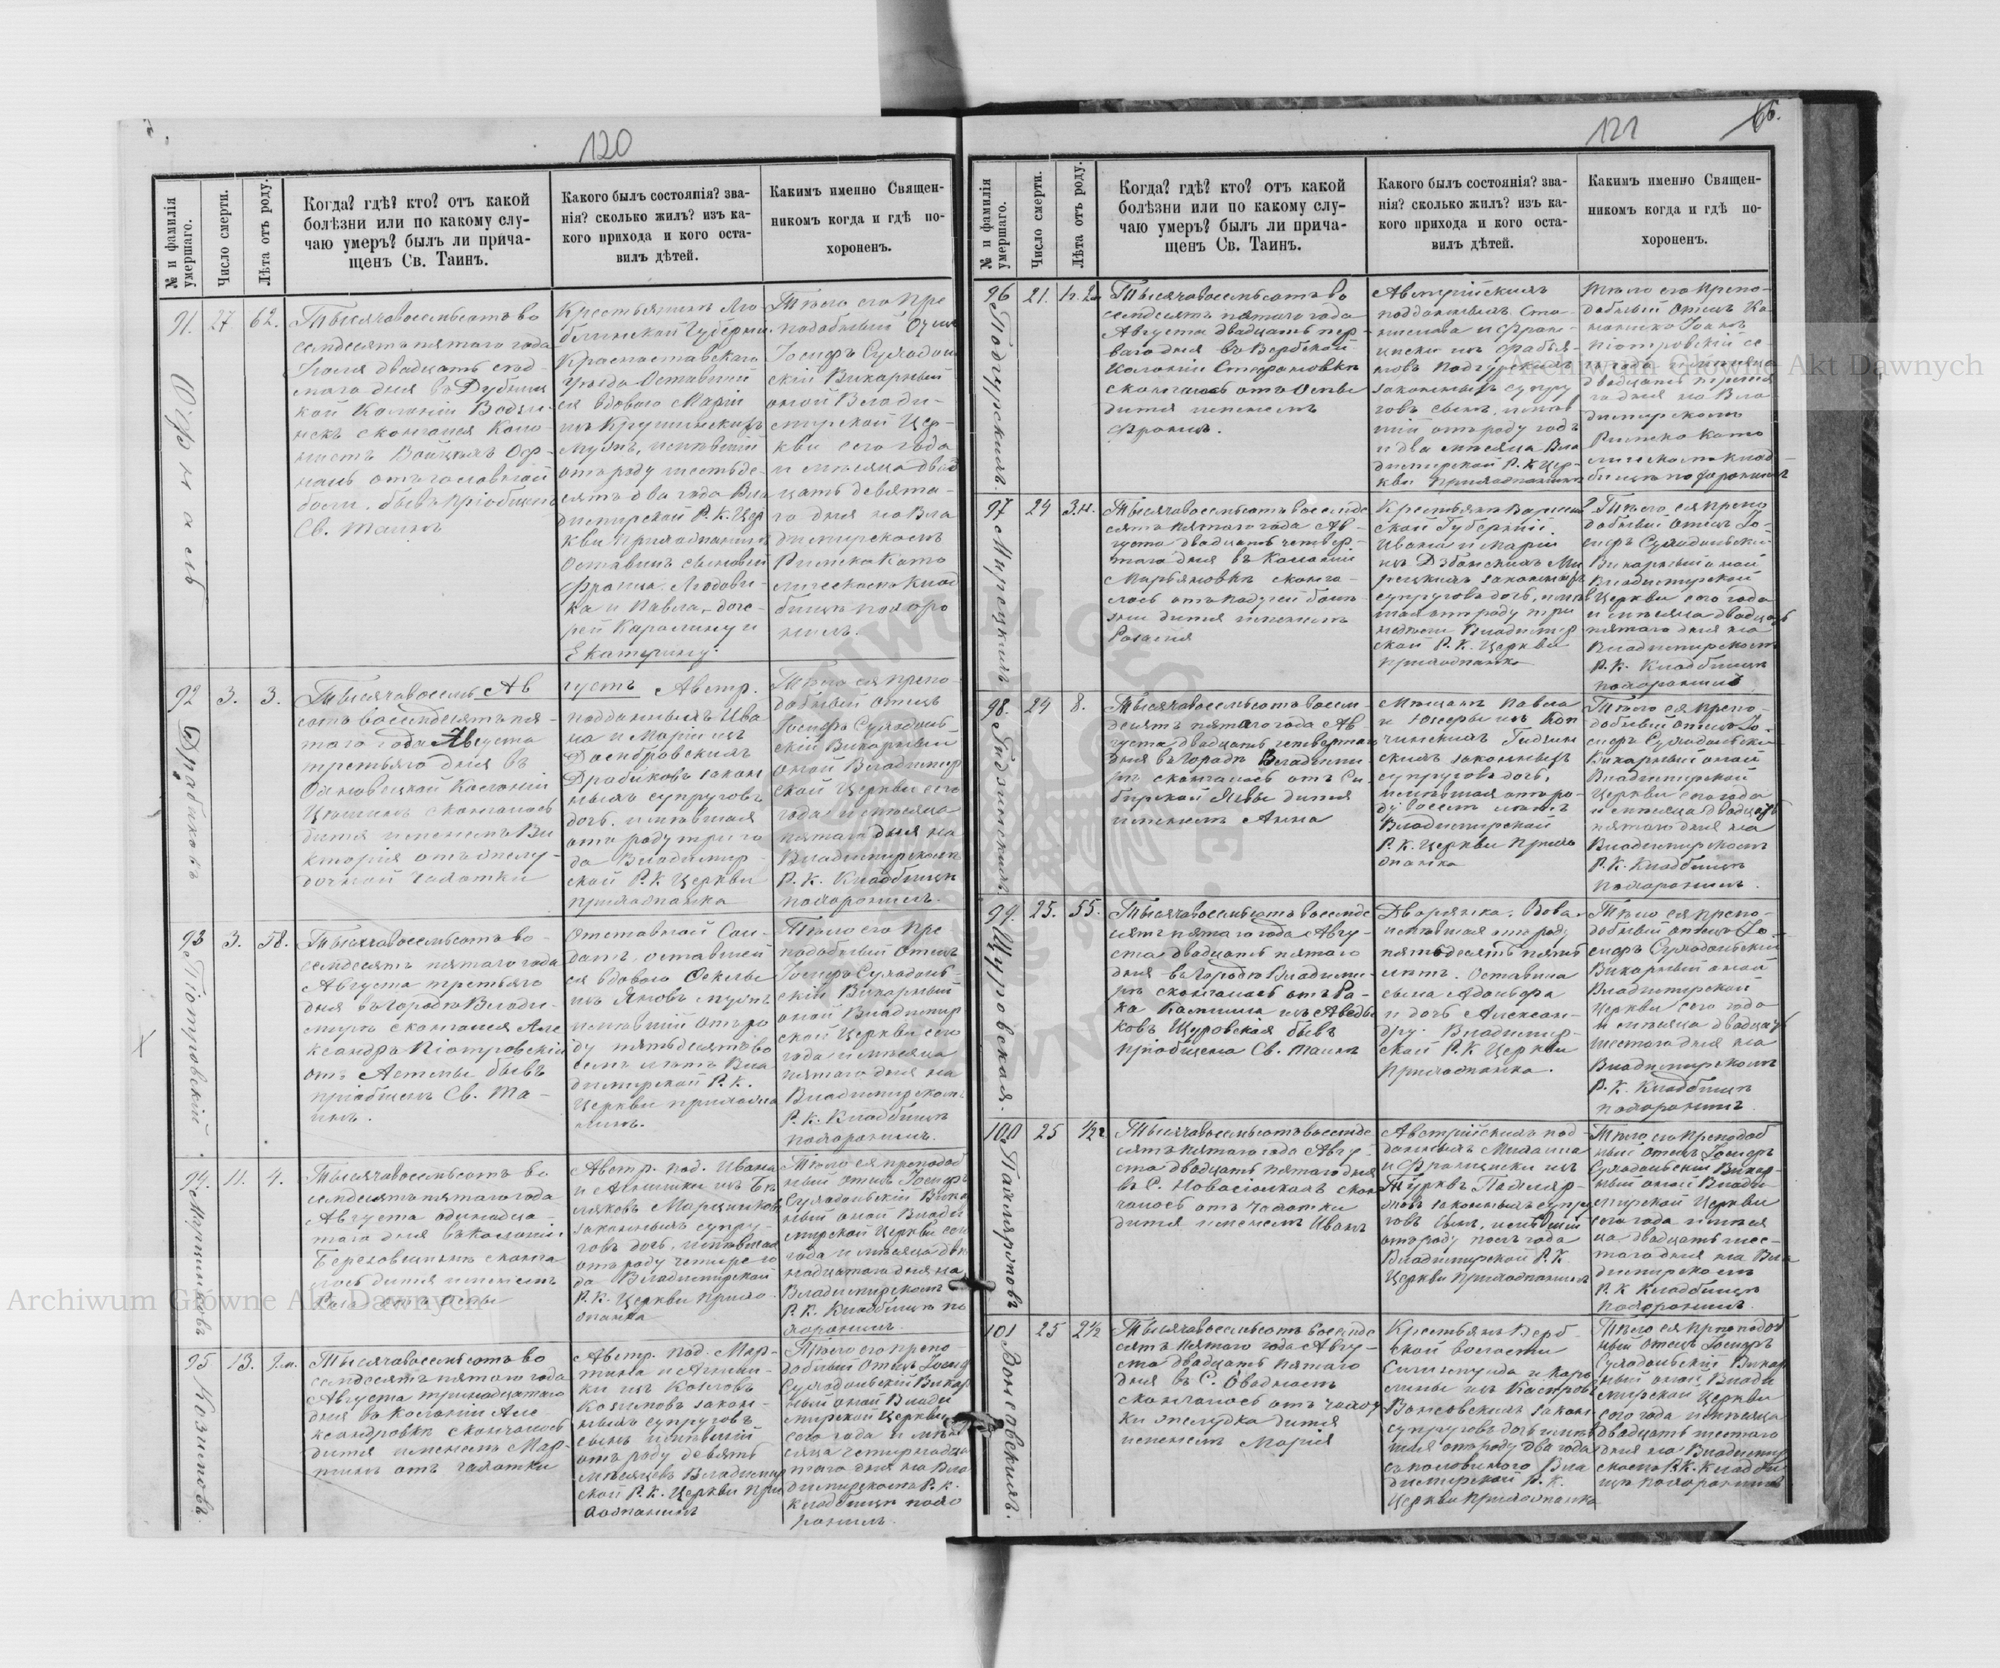 120
№ и фамилія умершаго.
Число смерти.
Лѣта отъ роду.
Когда? гдѣ? кто? отъ какой
болѣзни или по какому слу-
чаю умеръ? былъ ли прича-
щенъ Св. Таинъ.
Какого былъ состоянія? зва-
нія? сколько жилъ? изъ ка-
кого прихода и кого оста-
вилъ дѣтей.
Какимъ именно Священ-
никомъ когда и гдѣ по-
хороненъ.
91.
27
62.
Тысячавосемьсотъ во
семдесятъ пятаго года
Іюля двадцать сед-
маго дня въ
кой Колоніи
скончался Коло-
нистъ
Св. Таинъ
Крестьянинъ Лю
блинской Губерніи
Красноставскаго
Уѣзда Оставшій
ся вдовою Маріи
мужъ, имѣвшій
отъ роду шестьде-
сятъ два года Вла
димирской Р. К. Цер
кви Прихожанинъ
Оставилъ сыновей
Франца, Людови-
ка и Павла, доче-
рей Каролину и
Екатерину.
Тѣло его Пре
подобный Отецъ
Іосифъ Суходоль
скій Викарный
оной Влади-
мирской Цер-
кви сего года
и мѣсяца двад
цать девята-
го дня на Вла
димирскомъ
Римско Като
лическомъ Клад
бищѣ похоро
нилъ.
92
Драбиковъ
3.
3.
Тысячавосемь
сотъ восемдесятъ пя-
таго года Августа
третьяго дня въ
скончалось
дитя именемъ Ви
кторія отъ желу-
дочной чахотки
Австр.
подданныхъ Ива
на и Маріи изъ
Домбровскихъ
Драбиковъ закон
ныхъ супруговъ
дочь, имѣвшая
отъ роду три го
да Владимир-
ской Р. К. Церкви
прихожанка
Тѣло ея препо-
добный отецъ
Іосифъ Суходоль
скій Викарный
оной Владимир
ской Церкви сего
года и мѣсяца
пятаго дня на
Владимирскомъ
Р. К. Кладбищѣ
похоронилъ.
93
Піотровскій.
3.
58.
Тысячавосемьсотъ во-
семдесятъ пятаго года
Августа третьяго
дня въ городѣ Влади-
мирѣ скончался Але
ксандръ Піотровскій
отъ Астмы бывъ
пріобщенъ Св. Та-
инъ.
Отставной Сол-
датъ, оставшей
ся вдовою
изъ Яновъ мужъ
имѣвшій отъ ро
ду пятьдесятъ во
семь лѣтъ Вла
димирской Р. К.
Церкви прихожа
нинъ.
Тѣло его Пре
подобный Отецъ
Іосифъ Суходоль
скій Викарный
оной Владимир
ской Церкви сего
года и мѣсяца
пятаго дня на
Владимирскомъ
Р. К. Кладбищѣ
похоронилъ.
94.
Марциниковъ
11.
4.
Тысячавосемьсотъ во
семдесятъ пятаго года
Августа одинадца-
таго дня въ колоніи
Березовщинѣ сконча
лось дитя именемъ
Австр. под. Ивана
и Агнишки изъ
законныхъ супру-
говъ дочь, имѣвшая
отъ роду четыре го
да Владимирской
Р. К. Церкви прихо-
жанка
Тѣло ея преподоб
ный отецъ Іосифъ
Суходольскій Викар
ный оной Влади
мирской Церкви сего
года и мѣсяца две
надцатаго дня на
Владимирскомъ
Р. К. Кладбищѣ по
хоронилъ.
95
Козимовъ.
13.
9.м.
Тысячавосемьсотъ во
семдесятъ пятаго года
Августа тринадцатаго
дня въ Колоніи Але-
ксандровкѣ скончалось
дитя именемъ Мар-
тинъ отъ чахотки
Австр. под. Мар-
тина и Агниш-
ки изъ Козловъ
Козимовъ закон-
ныхъ супруговъ
сынъ имѣвшій
отъ роду девять
мѣсяцевъ Владимир
ской Р. К. Церкви при
хожанинъ
Тѣло его препо-
добный Отецъ Іосиф
Суходольскій Викар
ный оной Влади
мирской Церкви
сего года и мѣ-
сяца четырнадца
таго дня на Вла
димирскомъ Р. К.
Кладбищѣ похо
ронилъ.
121
66.
№ и фамилія умершаго.
Число смерти.
Лѣта отъ роду.
Когда? гдѣ? кто? отъ какой
болѣзни или по какому слу-
чаю умеръ? былъ ли прича-
щенъ Св. Таинъ.
Какого былъ состоянія? зва-
нія? сколько жилъ? изъ ка-
кого прихода и кого оста-
вилъ дѣтей.
Какимъ именно Священ-
никомъ когда и гдѣ по-
хороненъ.
96
Подгурскихъ.
21.
Тысячавосемьсотъ во
семдесятъ пятаго года
Августа двадцать пер-
ваго дня въ Вербской
Колоніи Стефановкѣ
скончалось отъ Оспы
дитя именемъ
Франц.
Австрійскихъ
подданныхъ Ста-
нислава и Фран-
циски изъ Фабья-
новъ Подгурскихъ
законныхъ супру
говъ сынъ, имѣв
шій отъ роду годъ
и два мѣсяца Вла
димирской Р. К. Цер-
кви прихожанинъ
Тѣло его Препо-
добный Отецъ Ка
ноникъ Іоаннъ
Піотровскій се-
го года и мѣсяца
двадцать
го дня на Вла
димирскомъ
Римско Като
лическомъ клад
бищѣ похоронилъ
97
Мирецкихъ
24
3.н.
Тысячавосемьсотъ восемде
сятъ пятаго года Ав-
густа двадцать четвер-
таго дня въ Колоніи
Марьяновкѣ сконча-
лось отъ падучей болѣ-
зни дитя именемъ
Розалія
Крестьянъ Варшав
ской Губерніи
Ивана и Маріи
изъ Дэбовскихъ Ми
рецкихъ законныхъ
супруговъ дочь, имѣв
шая отъ роду три
недѣли Владимир
ской Р. К. Церкви
прихожанка
Тѣло ея препо
добный Отецъ Іо-
сифъ Суходольскій
Викарный оной
Владимирской
Церкви сего года
и мѣсяца двадцать
пятаго дня на
Владимирскомъ
Р. К. Кладбищѣ
похоронилъ
98.
Гидзинскихъ
24
8.
Тысячавосемьсотъ восем-
десятъ пятаго года Ав
густа двадцать четвертаго
дня въ городѣ Владими
рѣ скончалось отъ Си-
бирской Язвы дитя
именемъ Анна
Мѣщанъ Павла
и Юзефы изъ
законныхъ
супруговъ дочь,
имѣвшая отъ ро-
ду восемь лѣтъ
Владимирской
Р. К. Церкви прихо
жанка
Тѣло ея препо-
добный отецъ Іо-
сифъ Суходольскій
Викарный оной
Владимирской
Церкви сего года
и мѣсяца двадцать
пятаго дня на
Владимирскомъ
Р. К. Кладбищѣ
похоронилъ.
99.
Щуровская.
25.
55.
Тысячавосемьсотъ восемде
сятъ пятаго года Авгу-
ста двадцать пятаго
дня въ городѣ Владими-
рѣ скончалась отъ Ра-
ка
ковъ Щуровская бывъ
пріобщена Св. Таинъ
Дворянка. Вдова.
имѣвшая отъ роду
пятьдесятъ пять
лѣтъ. Оставила
сына Адольфа
и дочь Алексан-
дру. Владимир-
ской Р. К. Церкви
Прихожанка.
Тѣло ея препо-
добный отецъ Іо-
сифъ Суходольскій
Викарный оной
Владимирской
Церкви сего года
и мѣсяца двадцать
шестаго дня на
Владимирскомъ
Р. К. Кладбищѣ
похоронилъ.
100
25
½г
Тысячавосемьсотъ восемде
сятъ пятаго года Авгу-
ста двадцать пятаго дня
въ С. Новосіолкахъ скон
чалось отъ чахотки
дитя именемъ Иванъ
Австрійскихъ под-
данныхъ Михаила
и Францишки изъ
Туркѣвъ
законныхъ супру
говъ сынъ, имѣвшій
отъ роду полъ года
Владимирской Р. К.
Церкви Прихожанинъ
Тѣло его Преподоб
ный отецъ Іосифъ
Суходольскій Викар-
ный оной Влади
мирской Церкви
сего года и мѣся
ца двадцать шес-
таго дня на Вла
димирскомъ
Р. К. Кладбищѣ
похоронилъ.
101
Вонсовскихъ.
25
2½
Тысячавосемьсотъ восемде
сятъ пятаго года Авгу-
ста двадцать пятаго
дня въ С. Овадномъ
скончалось отъ чахот
ки желудка дитя
именемъ Марія
Крестьянъ Верб-
ской волости
Сигизмунда и Каро
лины изъ
Вонсовскихъ закон
супруговъ дочь имѣв
шая отъ роду два года
съ половиною Вла
димирской Р. К.
Церкви прихожанка
Тѣло ея преподоб
ный отецъ Іосифъ
Суходольскій Викар
ный оной Влади
мирской Церкви
сего года и мѣсяца
двадцать шестаго
дня на Владимир
скомъ Р. К. Кладби
щѣ похоронилъ
Archiwum Główne Akt Dawnych
Archiwum Główne Akt Dawnych